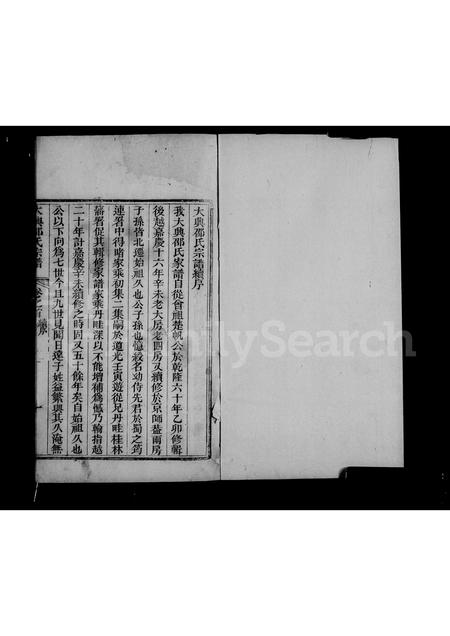 大興邵氏宗譜續序
我大興邵氏家譜自從曾祖楚帆公於乾隆六十年乙卯修輯
後越嘉慶十六年辛未老大房老四房又續修於京師蓋兩房
子孫皆北遷始祖久也公子孫也懺綬名幼侍先君於蜀之筠
連署中得睹家乘初集二集嗣於道光壬寅遊從兄丹畦桂林
藩署促其輯修家譜家乘丹畦深以不能增補為憾乃輪指越
二十年計嘉慶辛未續修之時固又五十餘年矣自始祖久也
公以下向為七世今且九世見聞日遠子姓益繁與其久淹無
大興邵氏宗譜
卷之首 序
FamilySearch